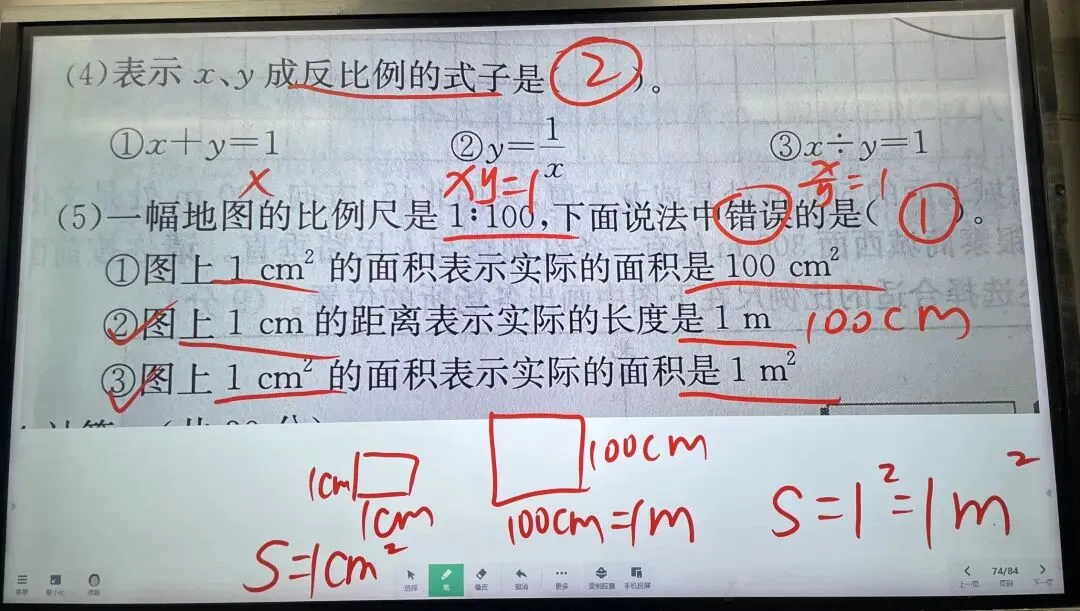 (4)表示 x、y 成反比例的式子是(②)。
①x+y=1 ②y=1/x ③x÷y=1
× xy=1 x/y=1
(5)一幅地图的比例尺是 1:100,下面说法中错误的是(①)。
①图上 1 cm² 的面积表示实际的面积是 100 cm²
②图上 1 cm 的距离表示实际的长度是 1 m 100cm
③图上 1 cm² 的面积表示实际的面积是 1 m²
1cm 100cm
1cm 100cm=1m S=1²=1m²
S=1cm²
菜单 最小化 选择 笔 橡皮 撤消 更多 录制胶囊 手机投屏 上一页 74/84 页码 下一页